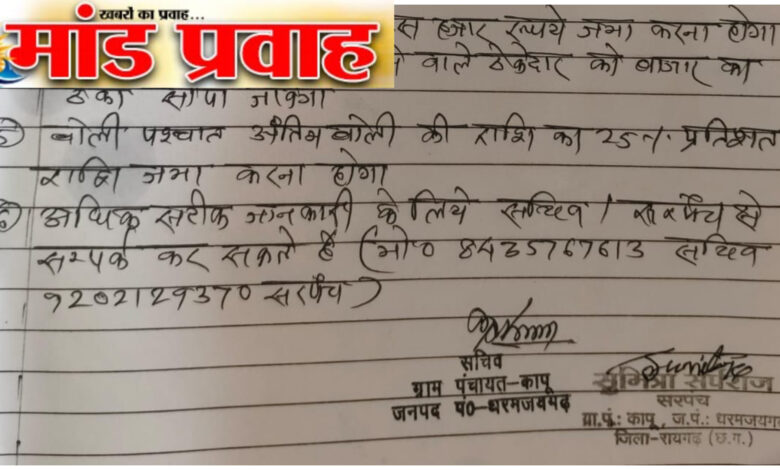 खबरों का प्रवाह...
मांड प्रवाह
हजार रूपये जमा करना होगा
वाले ठेकेदार को बाजार का
ठेका सौपा जाएगा
5) बोली पश्चात अंतिम बोली की राशि का 25% प्रतिशत
राशि जमा करना होगा
6) अधिक सटीक जानकारी के लिये सचिव / सरपंच से
सम्पर्क कर सकते है (मो० 8435767613 सचिव
9202129370 सरपंच)
सचिव
ग्राम पंचायत-कापू
जनपद पं०-धरमजयगढ़
सुमित्रा
सरपंच
ग्रा.पं.: कापू, ज.पं.: धरमजयगढ़
जिला-रायगढ़ (छ.ग.)